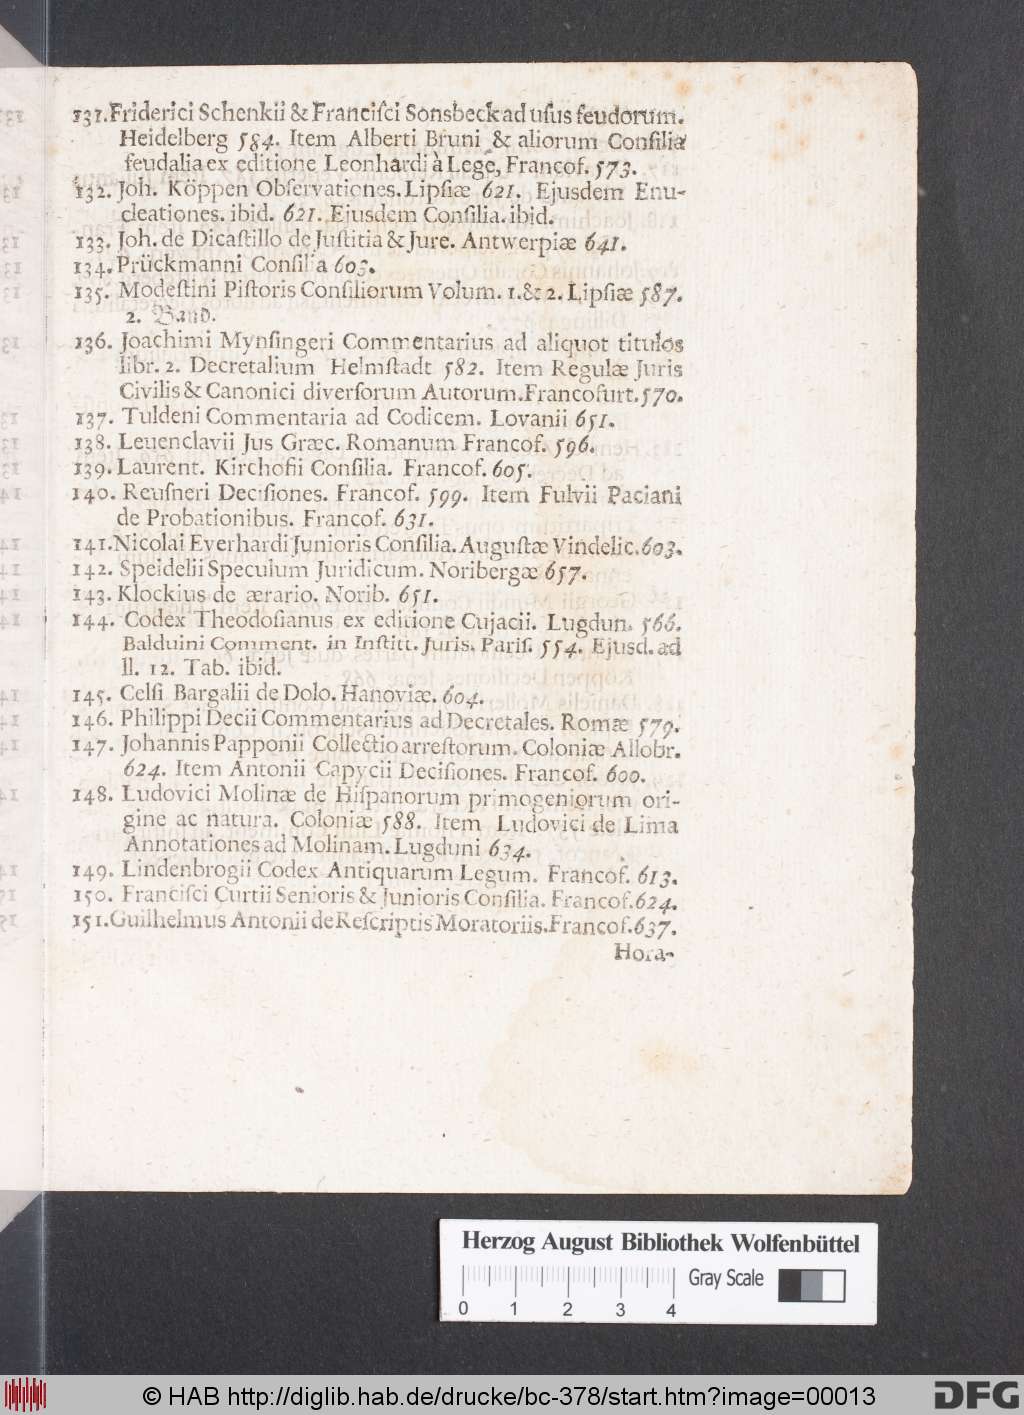 131. Friderici Schenkii & Francisci Sonsbeck ad usus feudorum.
Heidelberg 584. Item Alberti Bruni & aliorum Consilia
feudalia ex editione Leonhardi à Lege, Francof. 573.
132. Joh. Köppen Observationes. Lipsiæ 621. Ejusdem Enu-
cleationes. ibid. 621. Ejusdem Consilia. ibid.
133. Joh. de Dicastillo de Justitia & Jure. Antwerpiæ 641.
134. Prückmanni Consilia 603.
135. Modestini Pistoris Consiliorum Volum. 1. & 2. Lipsiæ 587.
2. Band.
136. Joachimi Mynsingeri Commentarius ad aliquot titulos
libr. 2. Decretalium Helmstadt 582. Item Regulæ Juris
Civilis & Canonici diversorum Autorum. Francofurt. 570.
137. Tuldeni Commentaria ad Codicem. Lovanii 651.
138. Leuenclavii Jus Græc. Romanum Francof. 596.
139. Laurent. Kirchofii Consilia. Francof. 605.
140. Reusneri Decisiones. Francof. 599. Item Fulvii Paciani
de Probationibus. Francof. 631.
141. Nicolai Everhardi Junioris Consilia. Augustæ Vindelic. 603.
142. Speidelii Speculum Juridicum. Noribergæ 657.
143. Klockius de ærario. Norib. 651.
144. Codex Theodosianus ex editione Cujacii. Lugdun. 566.
Balduini Comment. in Institt. Juris. Paris. 554. Ejusd. ad
ll. 12. Tab. ibid.
145. Celsi Bargalii de Dolo. Hanoviæ. 604.
146. Philippi Decii Commentarius ad Decretales. Romæ 579.
147. Johannis Papponii Collectio arrestorum. Coloniæ Allobr.
624. Item Antonii Capycii Decisiones. Francof. 600.
148. Ludovici Molinæ de Hispanorum primogeniorum ori-
gine ac natura. Coloniæ 588. Item Ludovici de Lima
Annotationes ad Molinam. Lugduni 634.
149. Lindenbrogii Codex Antiquarum Legum. Francof. 613.
150. Francisci Curtii Senioris & Junioris Consilia. Francof. 624.
151. Guilhelmus Antonii de Rescriptis Moratoriis. Francof. 637.
Hora-
Herzog August Bibliothek Wolfenbüttel
Gray Scale
0 1 2 3 4
© HAB http://diglib.hab.de/drucke/bc-378/start.htm?image=00013
DFG